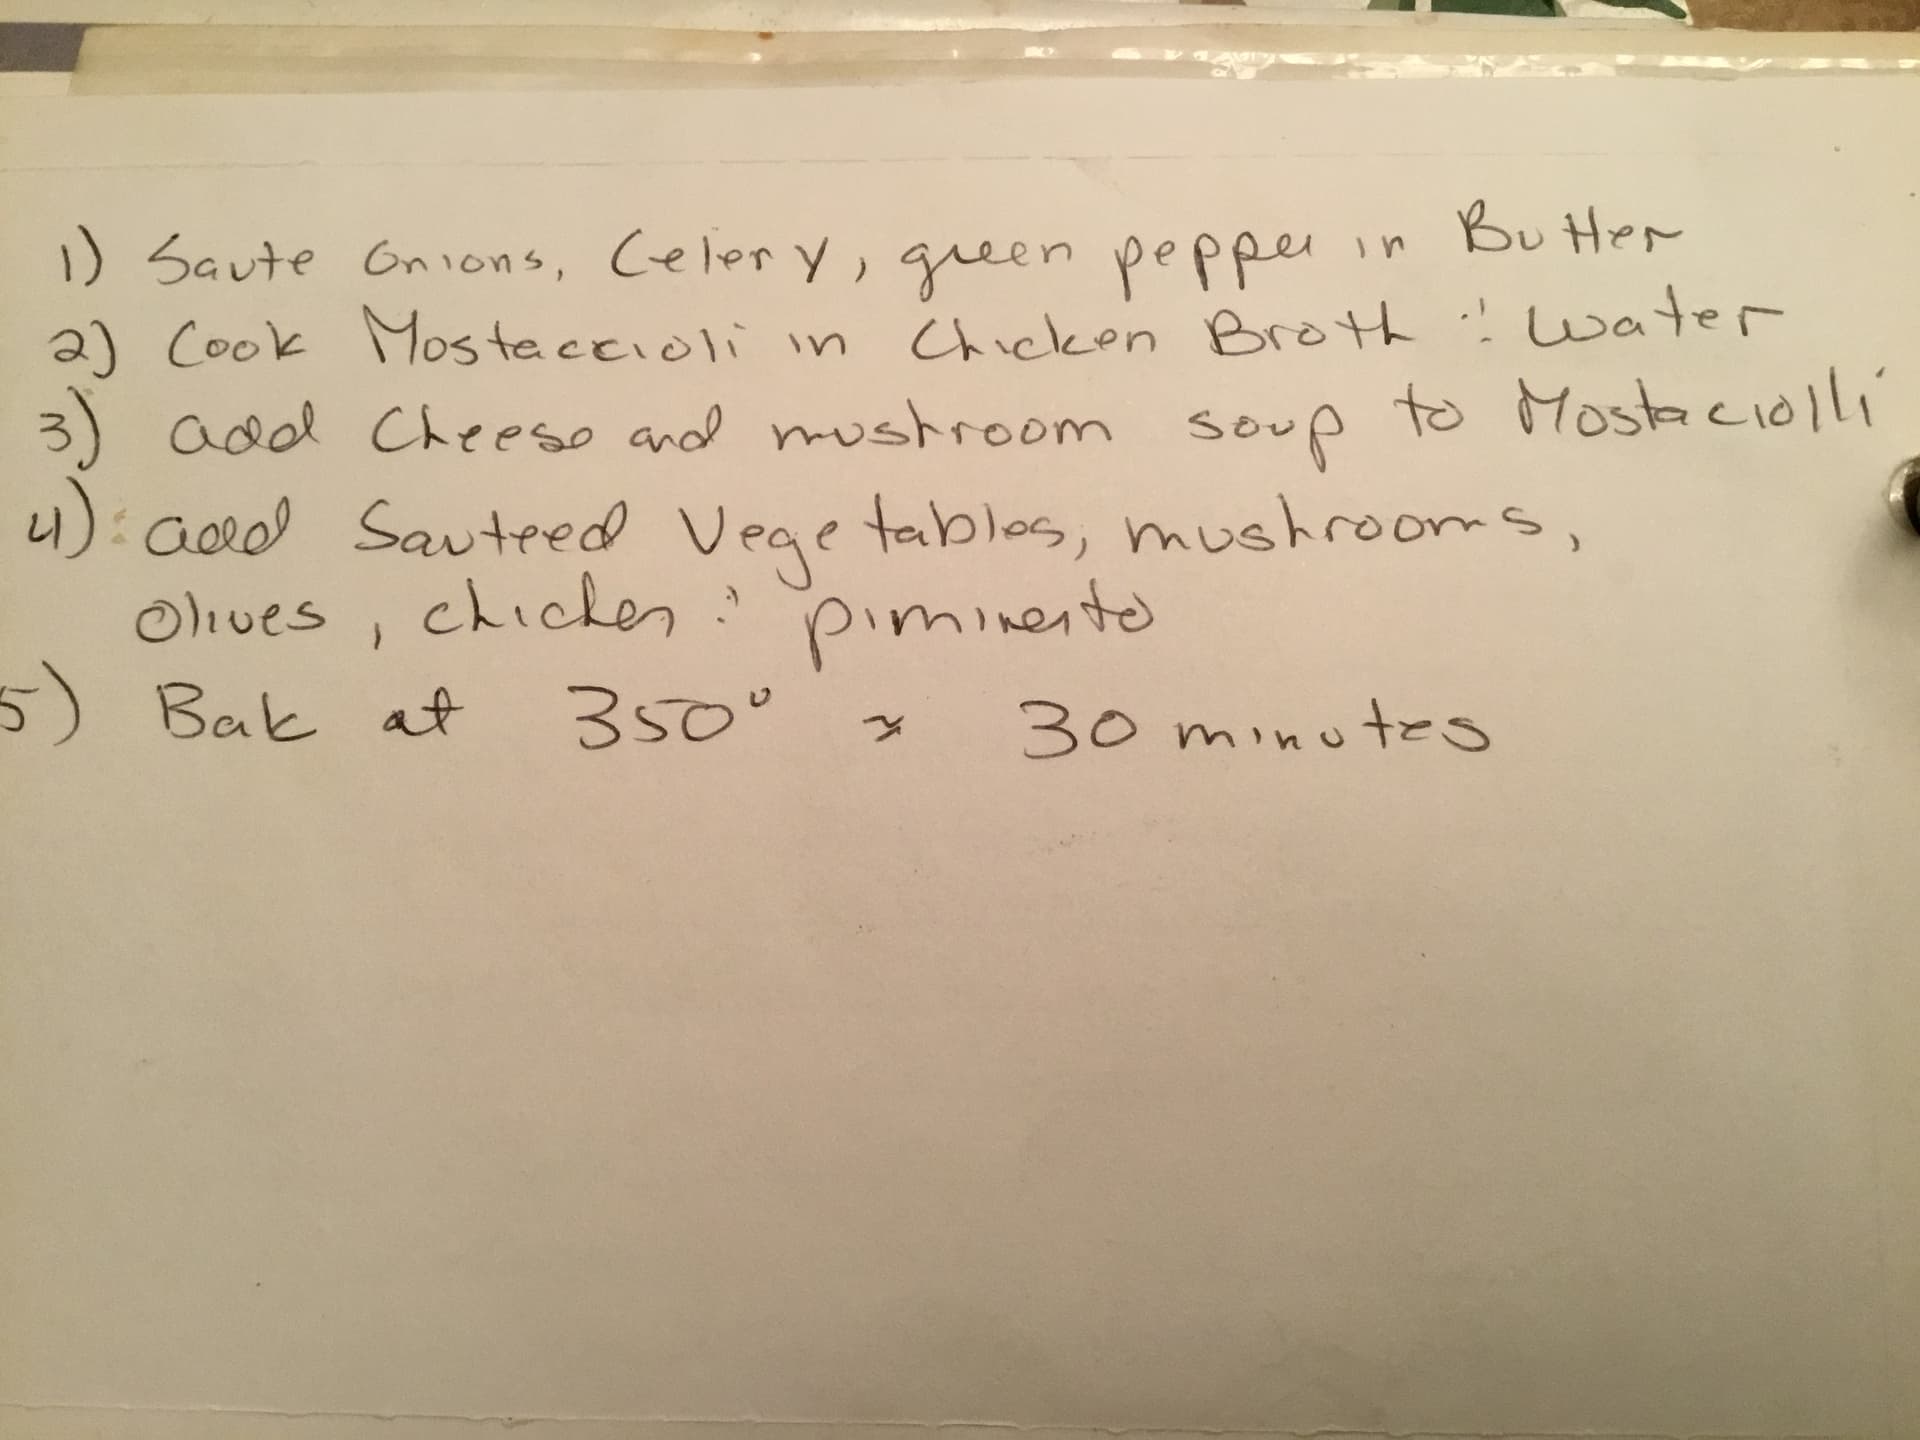 1) Saute Onions, Celery, green pepper in Butter
2) Cook Mostaccioli in Chicken Broth & Water
3) add Cheese and mushroom soup to Mostaciolli
4) add Sauteed Vegetables, mushrooms,
Olives, chicken & piminento
5) Bak at 350° ≈ 30 minutes